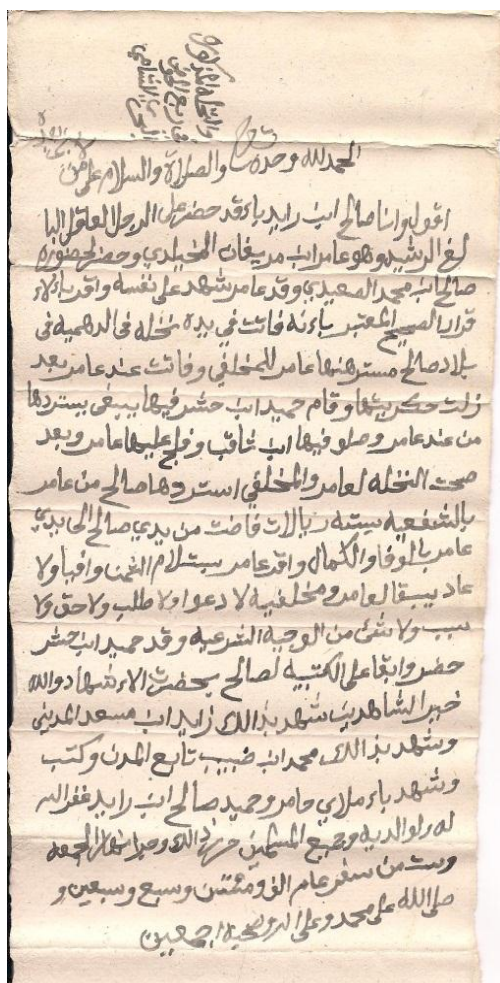 والنخله
في ربع
الحمد لله وحده والصلاة والسلام على من
اقول وانا صالح اب رايد باء قد حضر على الرجل العاقل البا
لغ الرشيد وهو عامر اب مريفان المخيلدي وحضر لحضوره
صالح اب محمد الصعيدي وقد عامر شهد على نفسه واقر باءلاء
قرار الصحيح المعتبر باءنه فاتت في يده نخله في الدهميه في
بلاد صالح مسترهنها عامر للمخلفي وفاتت عند عامر بعد
زلت حكريتها وقام حميد اب حشر فيها يبغى يستردها
من عند عامر وصلو فيها اب ثاقب وفلج عليها عامر وبعد
صحت النخله لعامر والمخلفي استردها صالح من عامر
بالشفعيه بسته ريالات فاضت من يدي صالح الى يدي
عامر بالوفا والكمال واقر عامر ببستلام الثمن وافيا ولا
عاد يبقا لعامر ومخلفيه لا دعوا ولا طلب ولا حق ولا
سبب ولا شئ من الوجيه الشرعيه وقد حميد اب حشر
حضر وابقا على الكتبيه لصالح بحضرت الاءشهاد والله
خير الشاهدين شهد بذالك زايد اب مسعد المديني
وشهد بذالك محمد اب ضبيب تابع المدن وكتب
وشهد باءملاي عامر وحميد صالح اب رايد غفر الله
له ولوالديه وجميع المسلمين ذالك نهار الجمعه
وست من سفر عام الف ومئتين وسبع وسبعين و
صلى الله على محمد وعلى اله وصحبه اجمعين